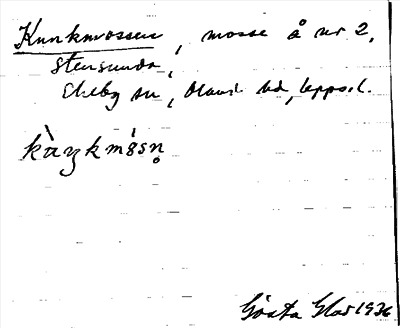 Kunkmossen, mosse å nr 2,
Stensunda,
Ekeby sn, Olands hd, Upps. l.
kàŋkmósn̥
Gösta Glas 1936